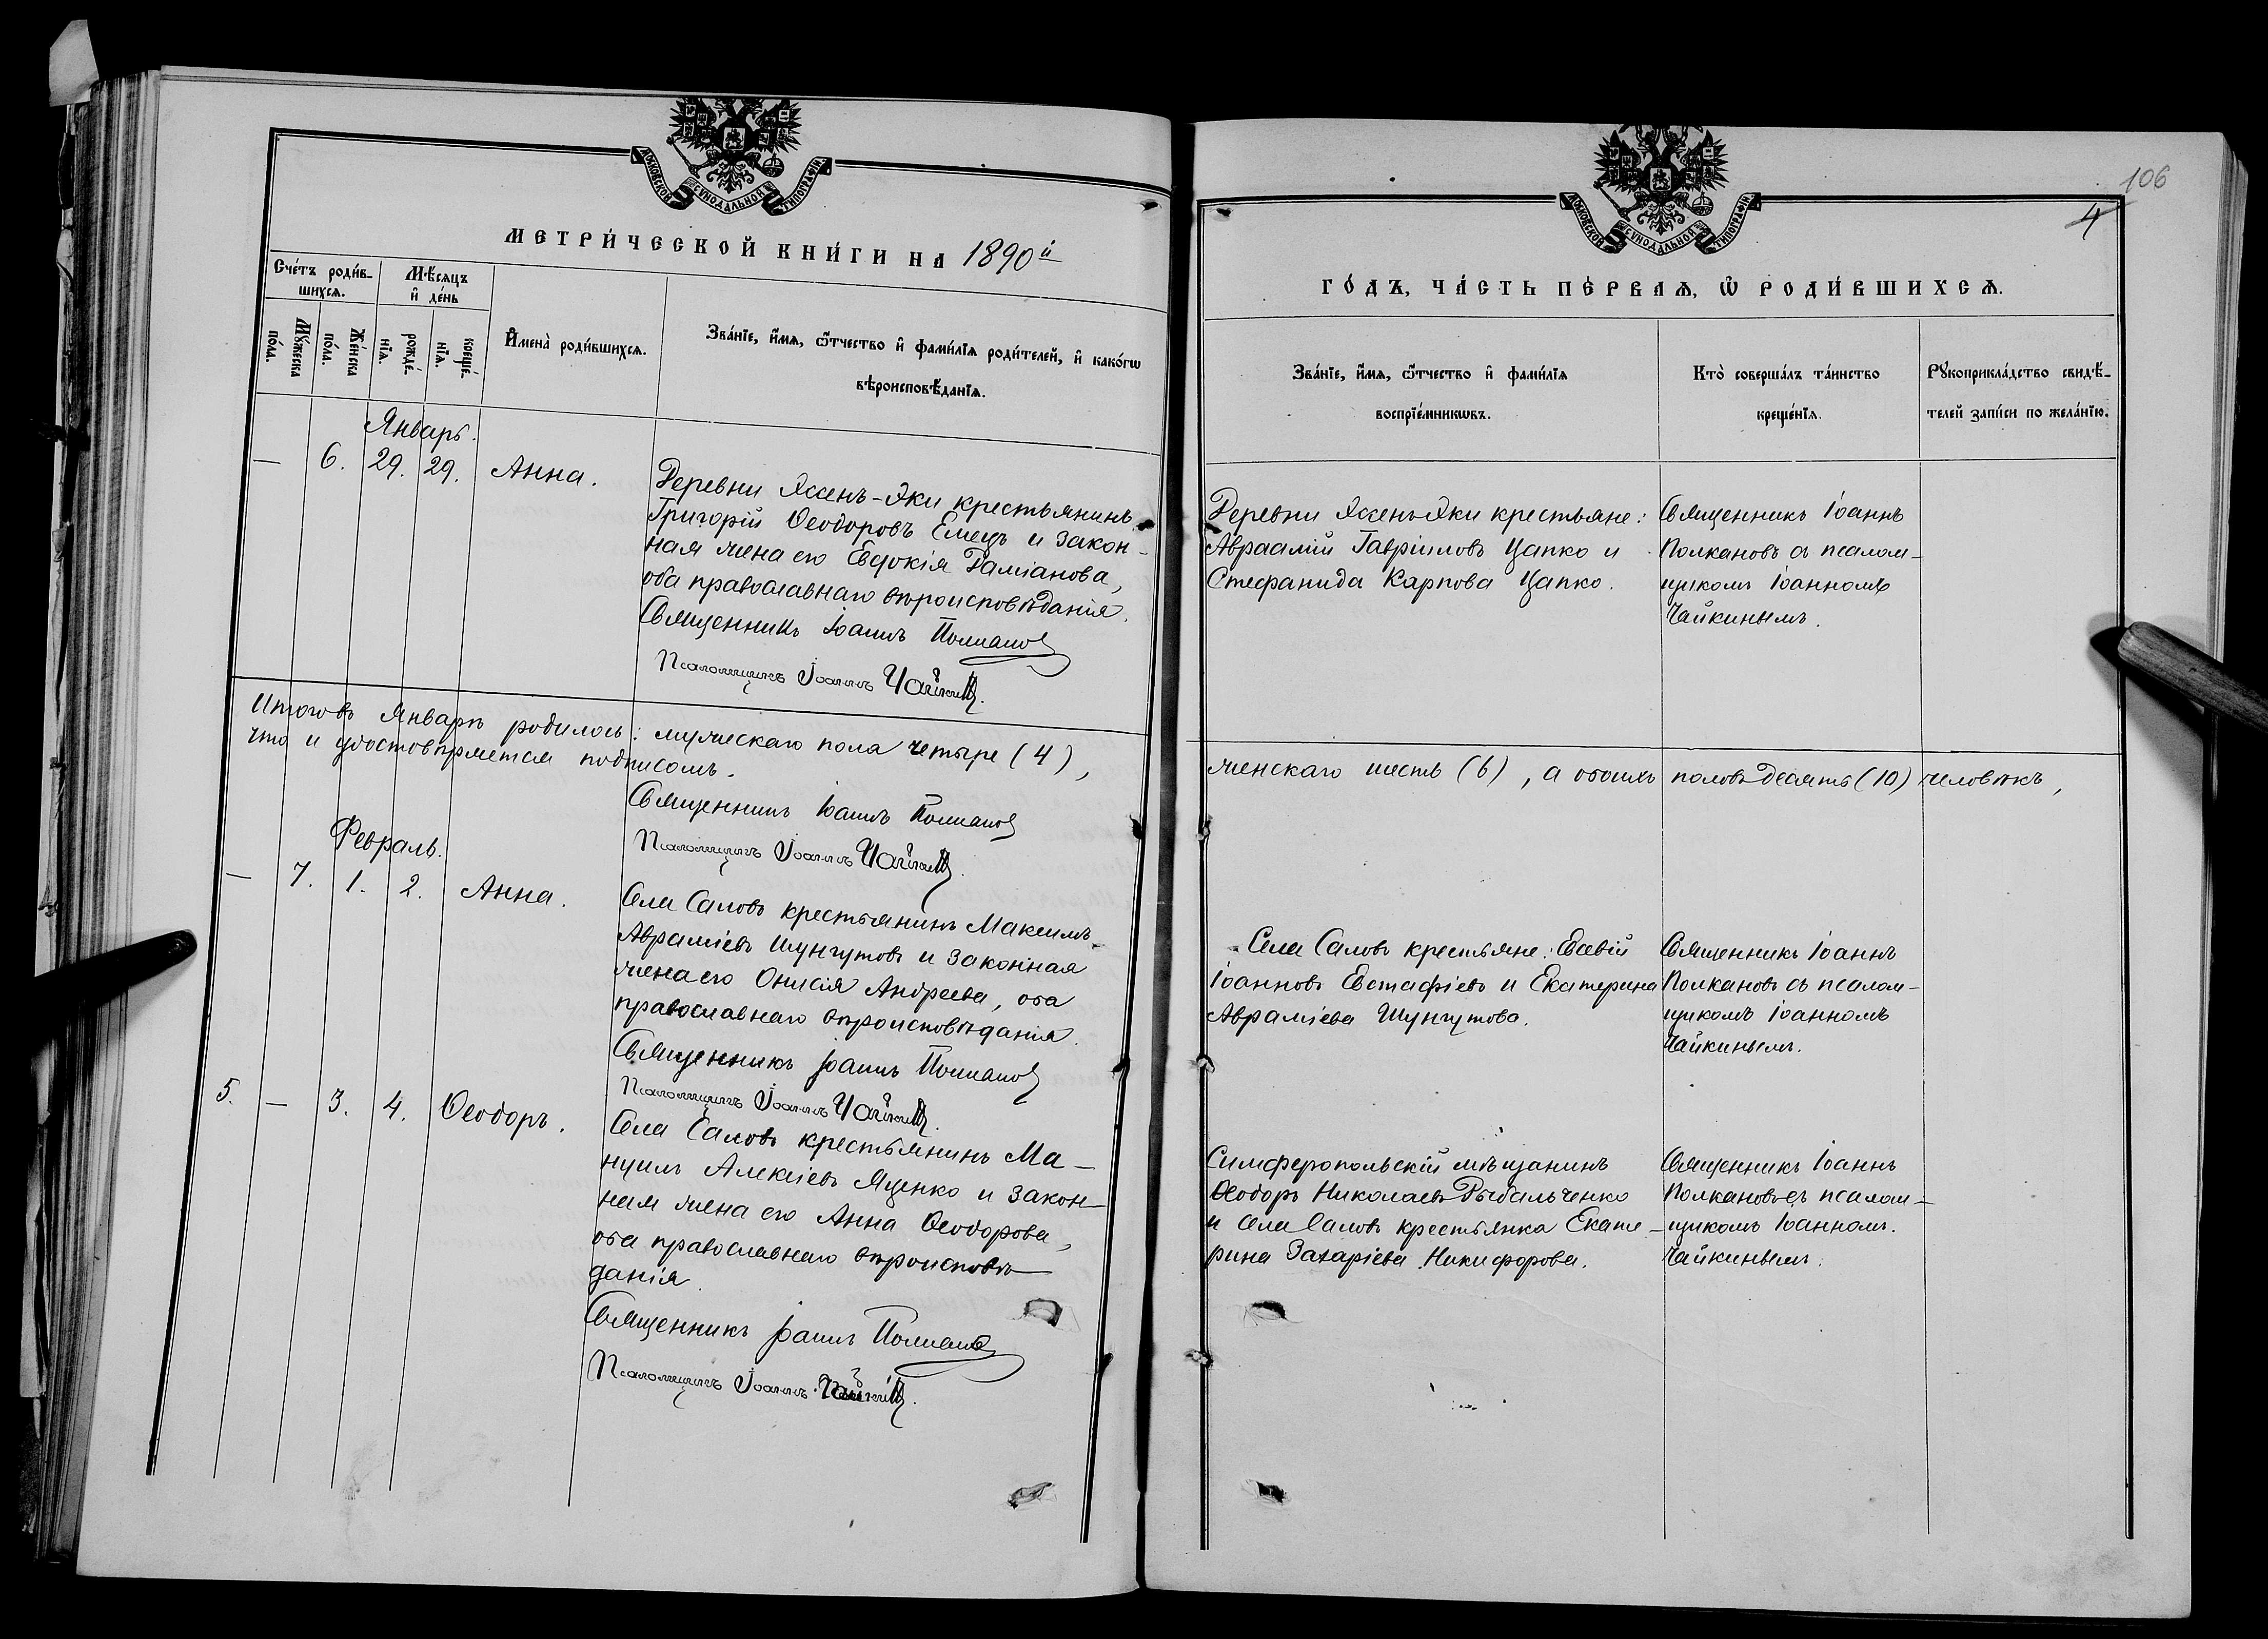 МОСКОВСКОЙ СѴНОДАЛЬНОЙ ТИПОГРАФІИ
МЕТРИ́ЧЕСКОЙ КНИ́ГИ НА 1890й
Сче́тъ роди́в-
шихсѧ.
Мѣ́сѧцъ
и҆ де́нь
Мꙋ́жеска
по́ла.
Же́нска
по́ла.
рожде́-
нїѧ.
креще́-
нїѧ.
И҆мена̀ роди́вшихсѧ.
Зва́нїе, и҆́мѧ, ѻ҆́тчество и҆ фами́лїѧ роди́телей, и҆ како́гѡ
вѣроисповѣ́данїѧ.
Январь.
— 6. 29. 29. Анна.
Деревни Яшень-Яки крестьянинъ
Григорій Ѳеодоровъ Емецъ и закон-
ная жена его Евдокія Даміанова,
оба православнаго вѣроисповѣданія.
Священникъ Іоаннъ Полкановъ
Псаломщикъ Іоаннъ Чайкинъ.
Итого въ Январѣ родилось: мужескаго пола четыре (4),
что и удостовѣряется подписомъ.
Священникъ Іоаннъ Полкановъ
Псаломщикъ Іоаннъ Чайкинъ.
Февраль.
— 7. 1. 2. Анна.
Села Саловъ крестьянинъ Максимъ
Авраміевъ Шунгутовъ и законная
жена его Онисія Андреева, оба
православнаго вѣроисповѣданія.
Священникъ Іоаннъ Полкановъ
Псаломщикъ Іоаннъ Чайкинъ.
5. — 3. 4. Ѳеодоръ.
Села Саловъ крестьянинъ Ма-
нуилъ Алексіевъ Яценко и закон-
ная жена его Анна Ѳеодорова,
оба православнаго вѣроисповѣ-
данія.
Священникъ Іоаннъ Полкановъ
Псаломщикъ Іоаннъ Чайкинъ.
106
4
МОСКОВСКОЙ СѴНОДАЛЬНОЙ ТИПОГРАФІИ
ГО́ДЪ, ЧА́СТЬ ПЕ́РВАѦ, Ѡ҆ РОДИ́ВШИХСѦ.
Зва́нїе, и҆́мѧ, ѻ҆́тчество и҆ фами́лїѧ
воспрїе́мникѡвъ.
Кто̀ соверша́лъ та́инство
креще́нїѧ.
Рꙋкоприкла́дство свидѣ́-
телей за́писи по жела́нїю.
Деревни Яшень-Яки крестьяне:
Авраамій Гавріиловъ Цапко и
Стефанида Карпова Цапко.
Священникъ Іоаннъ
Полкановъ съ псалом-
щикомъ Іоанномъ
Чайкинымъ.
женскаго шесть (6), а обоихъ половъ десять (10) человѣкъ,
Села Саловъ крестьяне: Савій
Іоанновъ Евстафіевъ и Екатерина
Авраміева Шунгутова.
Священникъ Іоаннъ
Полкановъ съ псалом-
щикомъ Іоанномъ
Чайкинымъ.
Симферопольскій мѣщанинъ
Ѳеодоръ Николаевъ Рыбальченко
и села Саловъ крестьянка Екате-
рина Захаріева Никифорова.
Священникъ Іоаннъ
Полкановъ съ псалом-
щикомъ Іоанномъ.
Чайкинымъ.